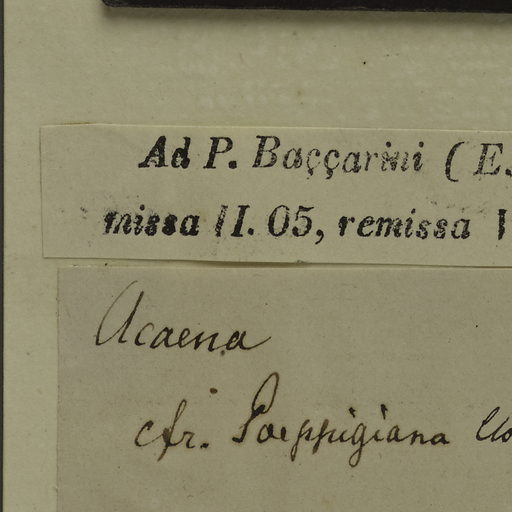 Ad P. Baççarini (E.
missa II. 05, remissa V
Acaena
cfr. Poeppigiana Clo